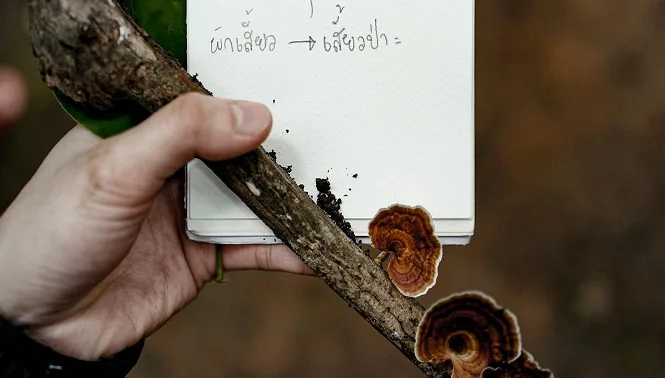 ผักเสี้ยว → เสี้ยวป่า =